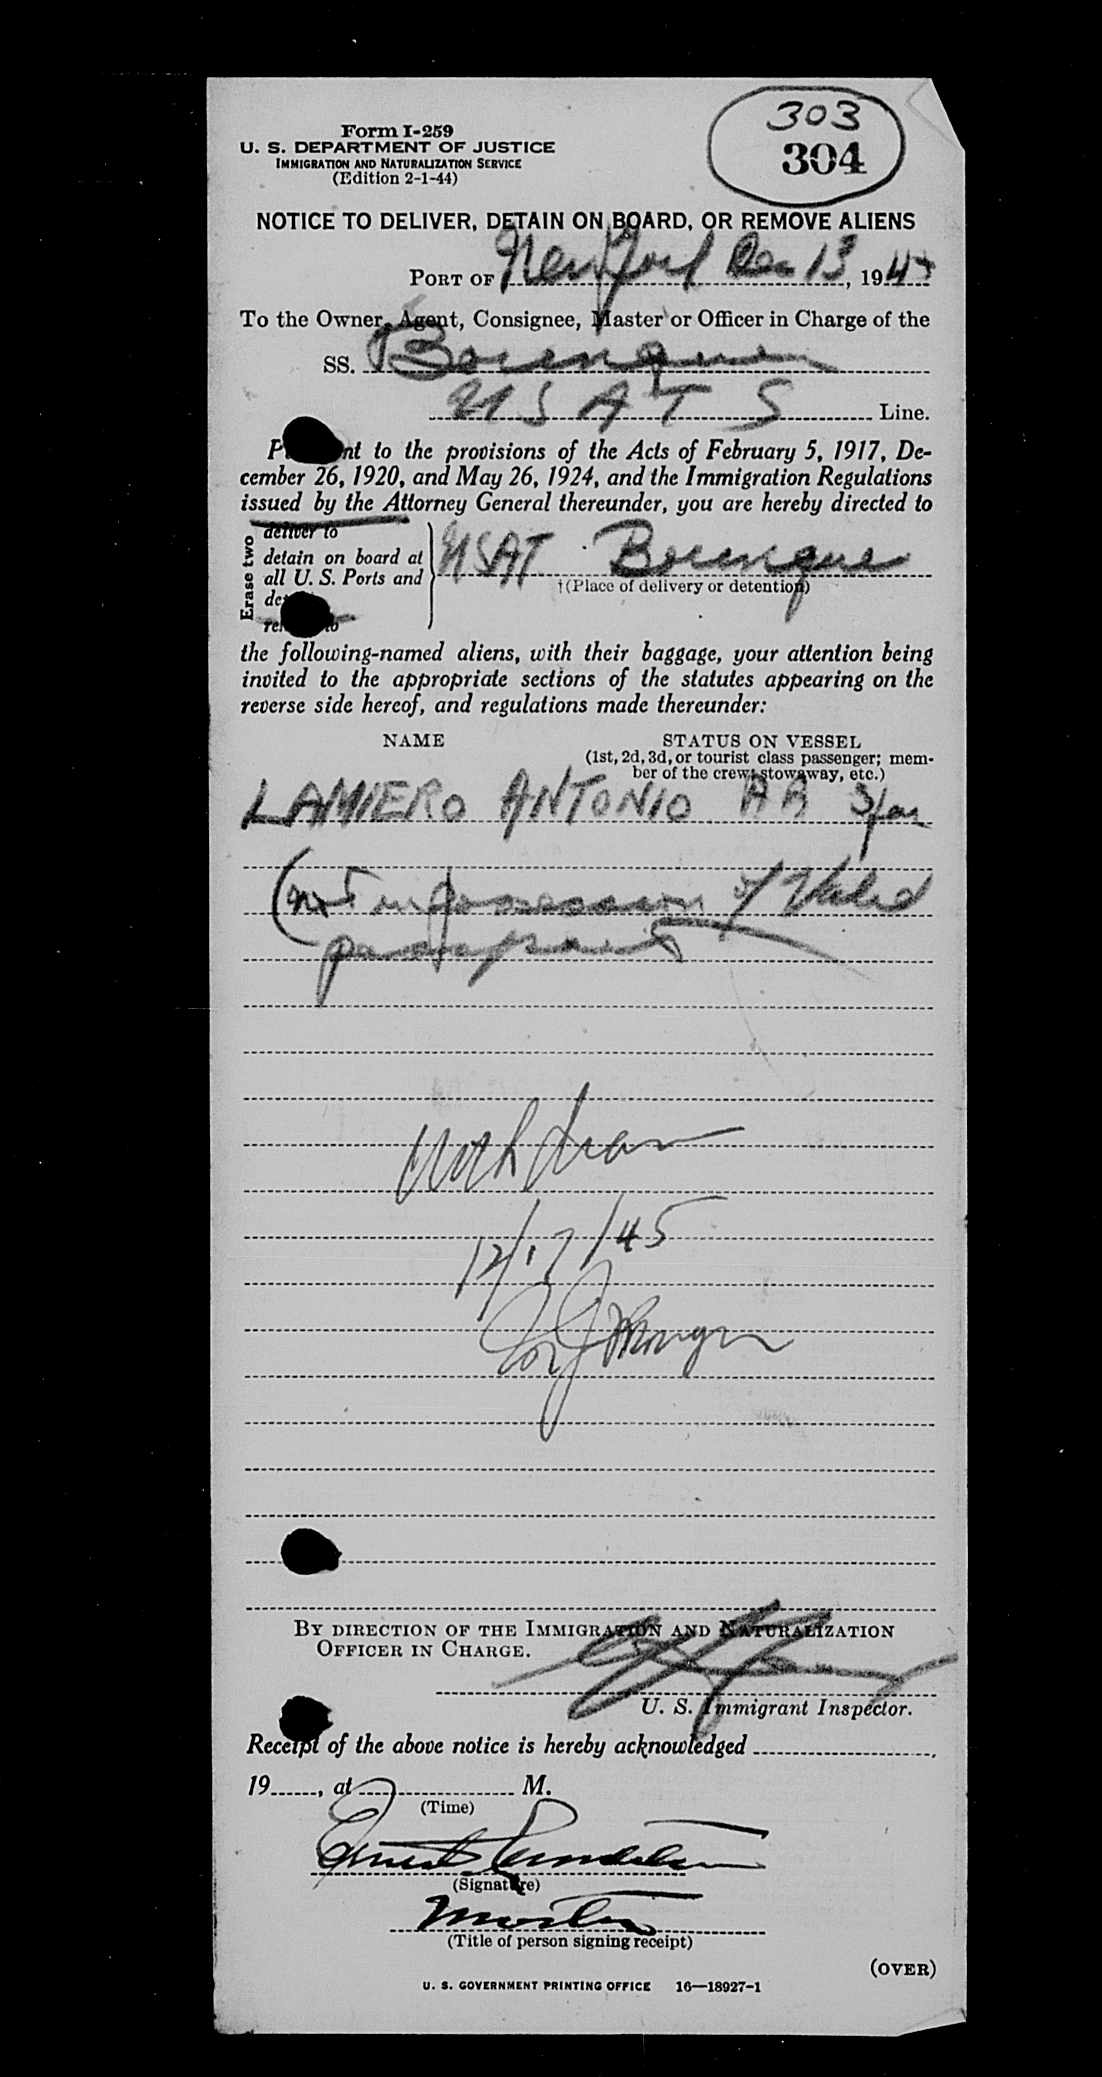 303
304
Form I-259
U. S. DEPARTMENT OF JUSTICE
IMMIGRATION AND NATURALIZATION SERVICE
(Edition 2-1-44)
NOTICE TO DELIVER, DETAIN ON BOARD, OR REMOVE ALIENS
PORT OF New York Dec 13, 1945
To the Owner, Agent, Consignee, Master or Officer in Charge of the
SS. Borinquen
USATS Line.
P nt to the provisions of the Acts of February 5, 1917, De-
cember 26, 1920, and May 26, 1924, and the Immigration Regulations
issued by the Attorney General thereunder, you are hereby directed to
Erase two
deliver to
detain on board at
all U. S. Ports and
de
re to
USAT Borinquen
†(Place of delivery or detention)
the following-named aliens, with their baggage, your attention being
invited to the appropriate sections of the statutes appearing on the
reverse side hereof, and regulations made thereunder:
NAME STATUS ON VESSEL
(1st, 2d, 3d, or tourist class passenger; mem-
ber of the crew, stowaway, etc.)
LAMIERO ANTONIO AB Span
(not in possession of Valid
passport
Withdrawn
12/17/45
BY DIRECTION OF THE IMMIGRATION AND NATURALIZATION
OFFICER IN CHARGE.
U. S. Immigrant Inspector.
Receipt of the above notice is hereby acknowledged ,
19 , at M.
(Time)
Ernest
(Signature)
Master
(Title of person signing receipt)
(OVER)
U. S. GOVERNMENT PRINTING OFFICE 16—18927-1